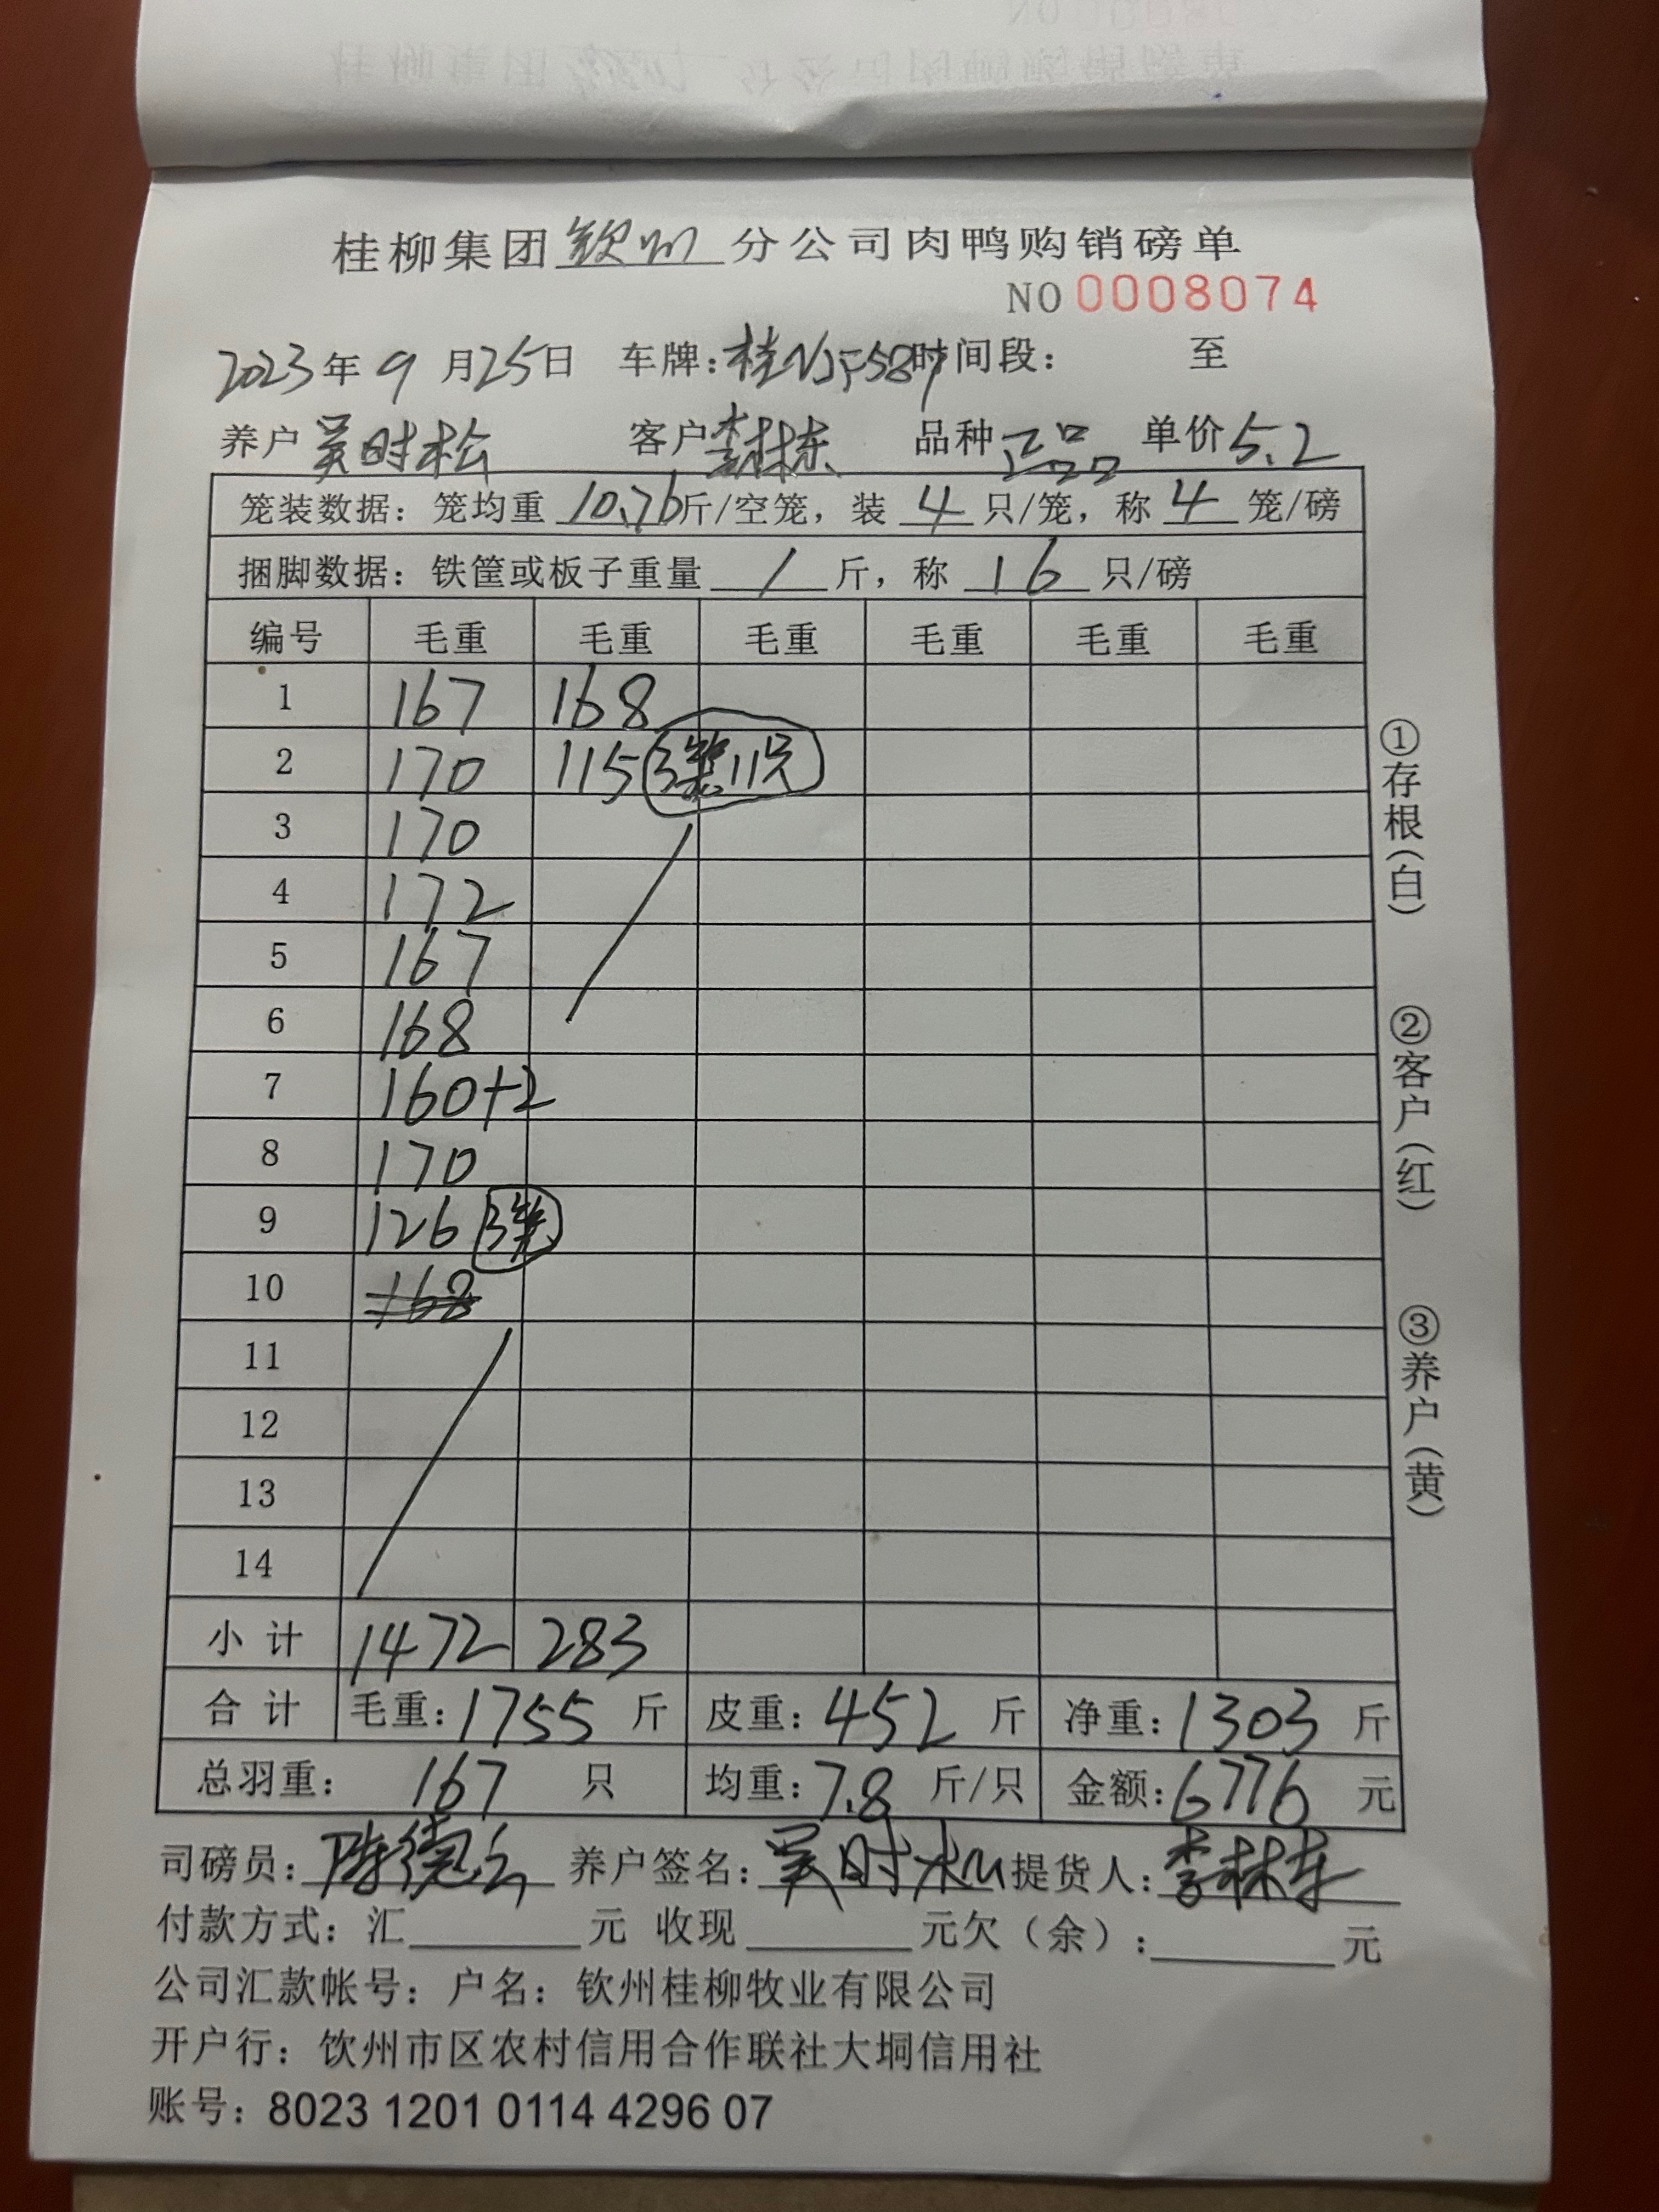 桂柳集团钦州分公司肉鸭购销磅单
NO 0008074
2023年9月25日 车牌:桂NJF587时间段: 至
养户吴时松 客户李林东 品种正品 单价5.2
笼装数据:笼均重10.76斤/空笼,装4只/笼,称4笼/磅
捆脚数据:铁筐或板子重量/斤,称16只/磅
编号 毛重 毛重 毛重 毛重 毛重 毛重
1 167 168
2 170 115 3笼11只
3 170
4 172
5 167
6 168
7 160+2
8 170
9 126 3笼
10 168
11
12
13
14
小计 1472 283
合计 毛重:1755斤 皮重:452斤 净重:1303斤
总羽重:167只 均重:7.8斤/只 金额:6776元
司磅员:陈德云 养户签名:吴时松 提货人:李林东
付款方式:汇 元 收现 元欠(余): 元
公司汇款帐号:户名:钦州桂柳牧业有限公司
开户行:钦州市区农村信用合作联社大垌信用社
账号:8023 1201 0114 4296 07
①存根(白)
②客户(红)
③养户(黄)